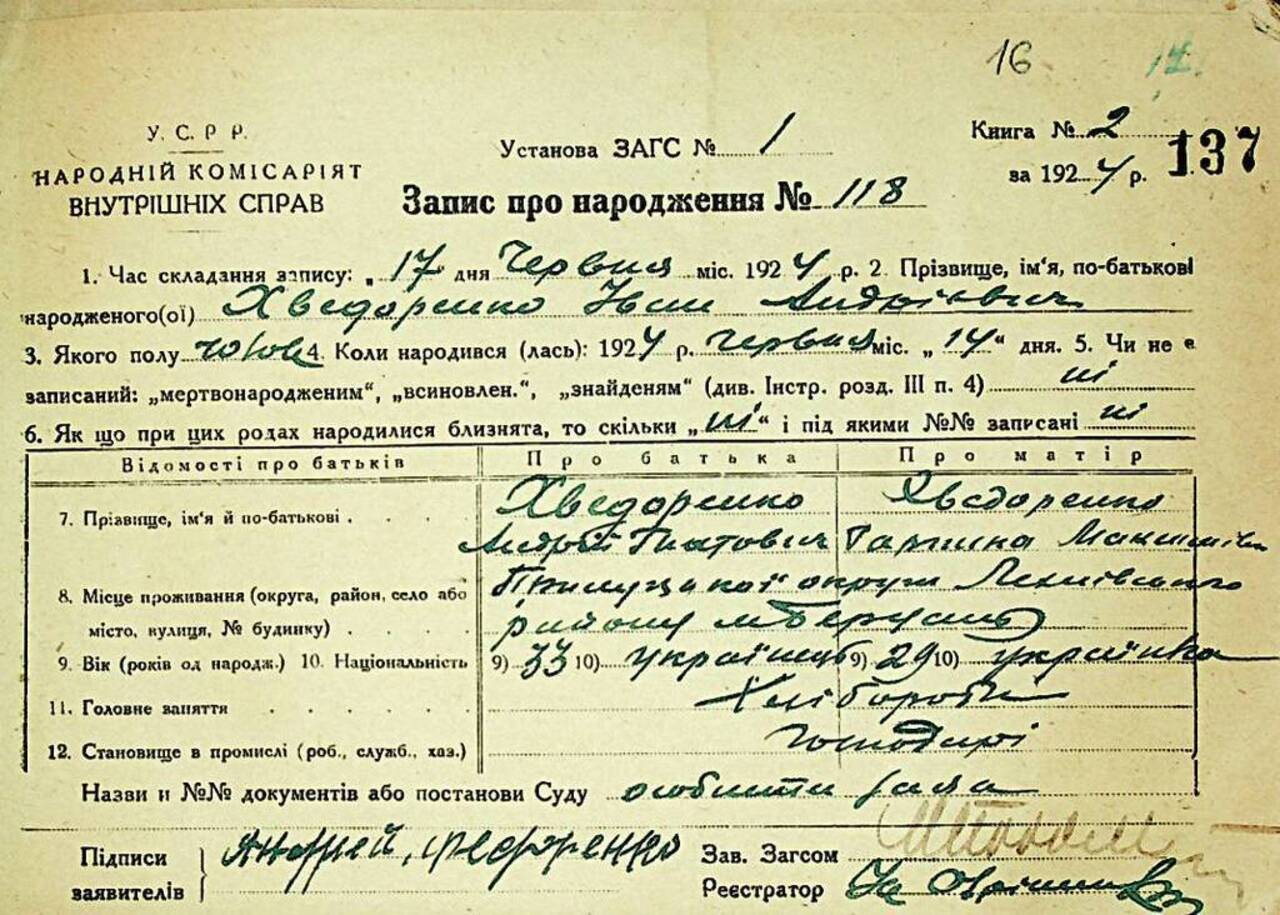 16
У. С. Р Р.
НАРОДНІЙ КОМІСАРІЯТ
ВНУТРІШНІХ СПРАВ
Установа ЗАГС № 1
Книга № 2
за 1924 р. 137
Запис про народження № 118
1. Час складання запису: „17 дня Червня міс. 1924 р. 2. Прізвище, ім'я, по-батькові
народженого(ої) Хведоренко Іван Андрієвич
3. Якого полу чолов 4. Коли народився (лась): 1924 р. червня міс. „14" дня. 5. Чи не є
записаний: „мертвонародженим", „всиновлен.", „знайденям" (див. Інстр. розд. III п. 4) ні
6. Як що при цих родах народилися близнята, то скільки „ні" і під якими №№ записані ні
Відомості про батьків Про батька Про матір
7. Прізвище, ім'я й по-батькові . . . . Хведоренко Хведоренко
Андрій Гнатович Горпина Максимівна
8. Місце проживання (округа, район, село або Прилуцької округи
місто, вулиця, № будинку) . . . . району
9. Вік (років од народж.) 10. Національність 9) 33 10) українець 9) 29 10) українка
11. Головне заняття . . . . . . Хлібороби
12. Становище в промислі (роб., служб., хаз.) Господарі
Назви и №№ документів або постанови Суду особиста заява
Підписи
заявителів Андрей, Федоренко
Зав. Загсом
Реєстратор